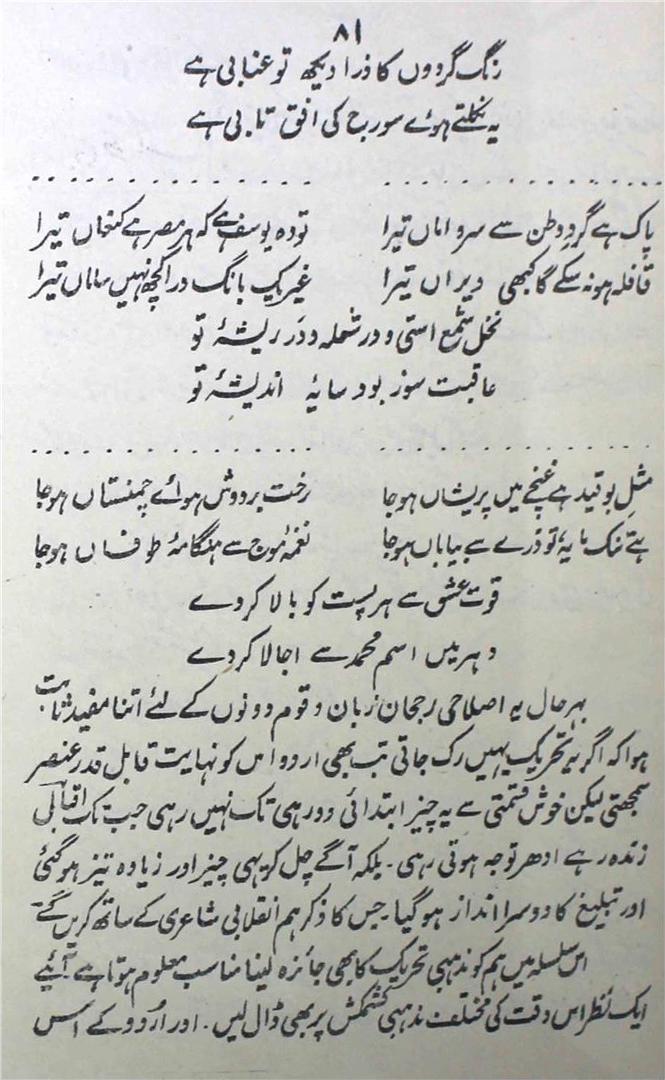 ۸۱
رنگ گردوں کا ذرا دیکھ تو عنابی ہے
یہ نکلتے ہوئے سورج کی افق تابی ہے
پاک ہے گردِ وطن سے سرِ داماں تیرا تو وہ یوسف ہے کہ ہر مصر ہے کنعاں تیرا
قافلہ ہو نہ سکے گا کبھی ویراں تیرا غیر یک بانگ درا کچھ نہیں ساماں تیرا
نخل شمع استی و در شعلہ دود ریشۂ تو
عاقبت سوز بود سایۂ اندیشۂ تو
مثلِ بو قید ہے غنچے میں پریشاں ہو جا رخت بردوش ہوائے چمنستاں ہو جا
ہے تنک مایہ، تو ذرے سے بیاباں ہو جا نغمۂ موج سے ہنگامۂ طوفاں ہو جا
قوت عشق سے ہر پست کو بالا کر دے
دہر میں اسم محمد سے اجالا کر دے
بہر حال یہ اصلاحی رجحان زبان و قوم دونوں کے لئے اتنا مفید ثابت
ہوا کہ اگر یہ تحریک یہیں رک جاتی تب بھی اردو اس کو نہایت قابل قدر عنصر
سمجھتی لیکن خوش قسمتی سے یہ چیز ابتدائی دور ہی تک نہیں رہی جب تک اقبال
زندہ رہے ادھر توجہ ہوتی رہی۔ بلکہ آگے چل کر یہی چیز اور زیادہ تیز ہو گئی
اور تبلیغ کا دوسرا انداز ہو گیا۔ جس کا ذکر ہم انقلابی شاعری کے ساتھ کریں گے۔
اس سلسلہ میں ہم کو مذہبی تحریک کا بھی جائزہ لینا مناسب معلوم ہوتا ہے آیئے
ایک نظر اس وقت کی مختلف مذہبی کشمکش پر بھی ڈال لیں۔ اور اردو کے اس